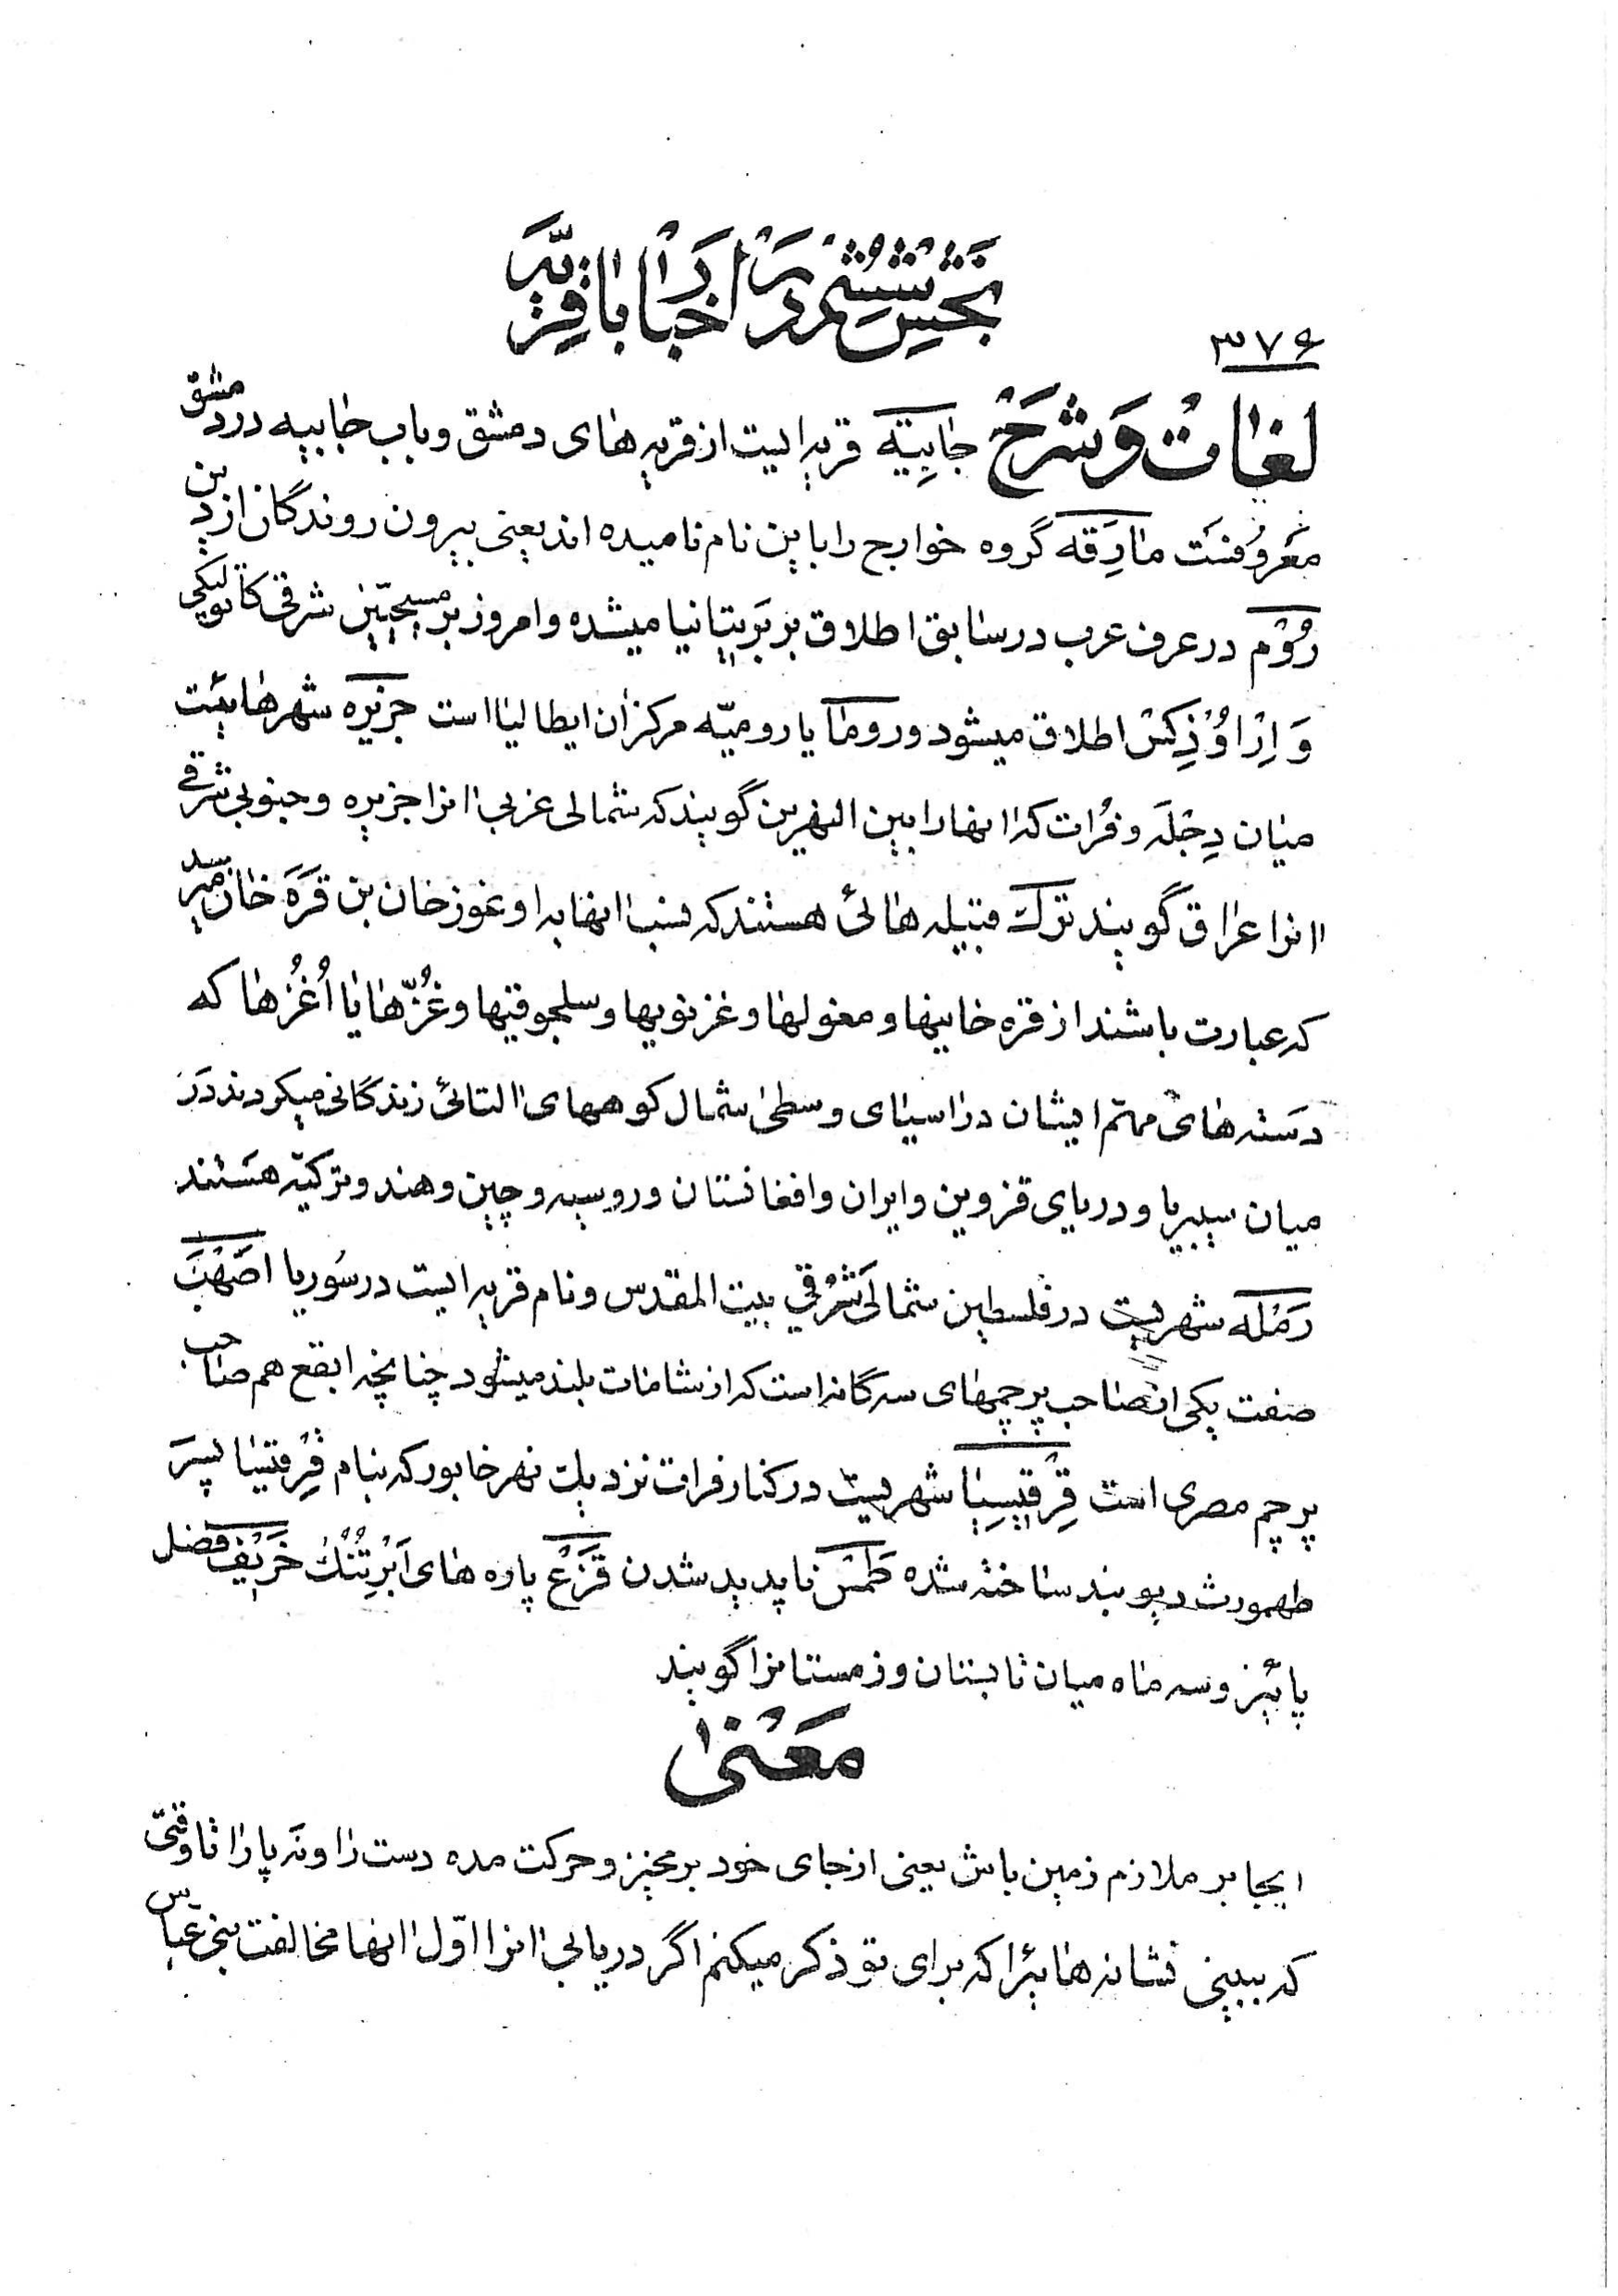 بخش ششم در اخبار باقریه
۳۷۶
لغات و شرح جابیته قریه ایست از قریه های دمشق و باب جابیه در دمشق
معروفست مارقه گروه خوارج را باین نام نامیده اند یعنی بیرون روندگان از دین
روم در عرف عرب در سابق اطلاق بر بریتانیا میشده و امروز بر مسیحیین شرقی کاتولیکی
و ارْاوُذِکس اطلاق میشود و روما یا رومیّه مرکز آن ایطالیا است جزیره شهرهایئت
میان دِجله و فُرات که انها را بین النهرین گویند که شمالی غربی انرا جزیره و جنوبی شرقی
انرا عراق گویند ترک قبیله هائی هستند که نسب انها به اوغوزخان بن قَرَه خان میرسد
که عبارت باشند از قره خانیها و مغولها و غزنویها و سلجوقیها و غُزّها یا اُغُزها که
دسته های مهمّ ایشان در اسیای وسطی شمال کوههای التائی زندگانی میکردند در
میان سیبریا و دریای قزوین و ایران و افغانستان و روسیه و چین و هند و ترکیّه هستند
رَمْله شهریت در فلسطین شمالی شرقی بیت المقدس و نام قریه ایست در سوریا اصهب
صفت یکی از صاحب پرچمهای سه گانه است که از شامات بلند میشود چنانچه ابقع هم صاحب
پرچم مصری است قِرقیسِیا شهریست در کنار فرات نزدیک نهر خابور که بنام قِرقیسیا پسر
طهمورث دیوبند ساخته شده طمس ناپدید شدن قَزَع پاره های ابر تُنُک خریف فصل
پائیز و سه ماه میان تابستان و زمستانرا گویند
معنی
ایجابر ملازم زمین باش یعنی از جای خود برمخیز و حرکت مده دست را و نه پا را تا وقتی
که ببینی نشانه هائیرا که برای تو ذکر میکنم اگر دریابی انرا اوّل انها مخالفت بنی عبّاس